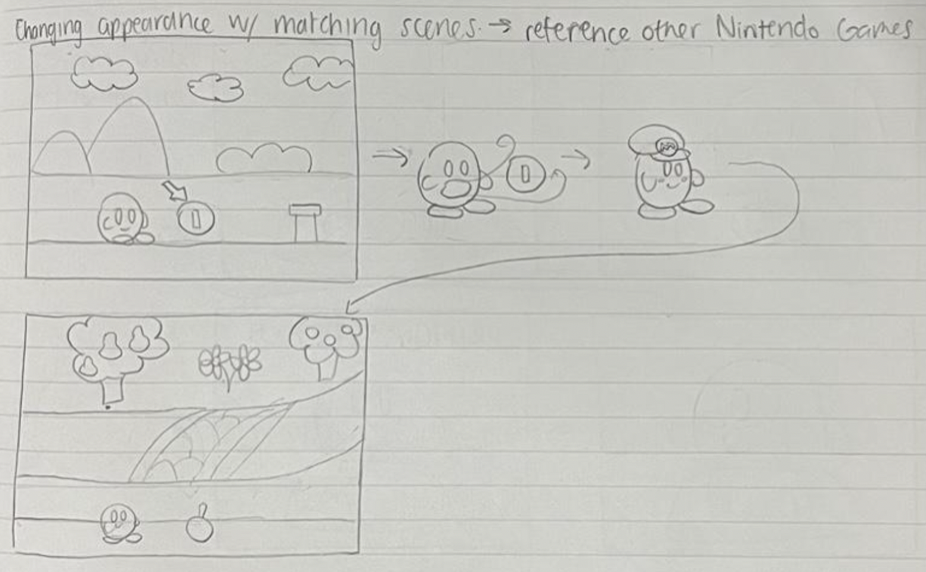 Changing appearance w/ matching scenes. → reference other Nintendo Games